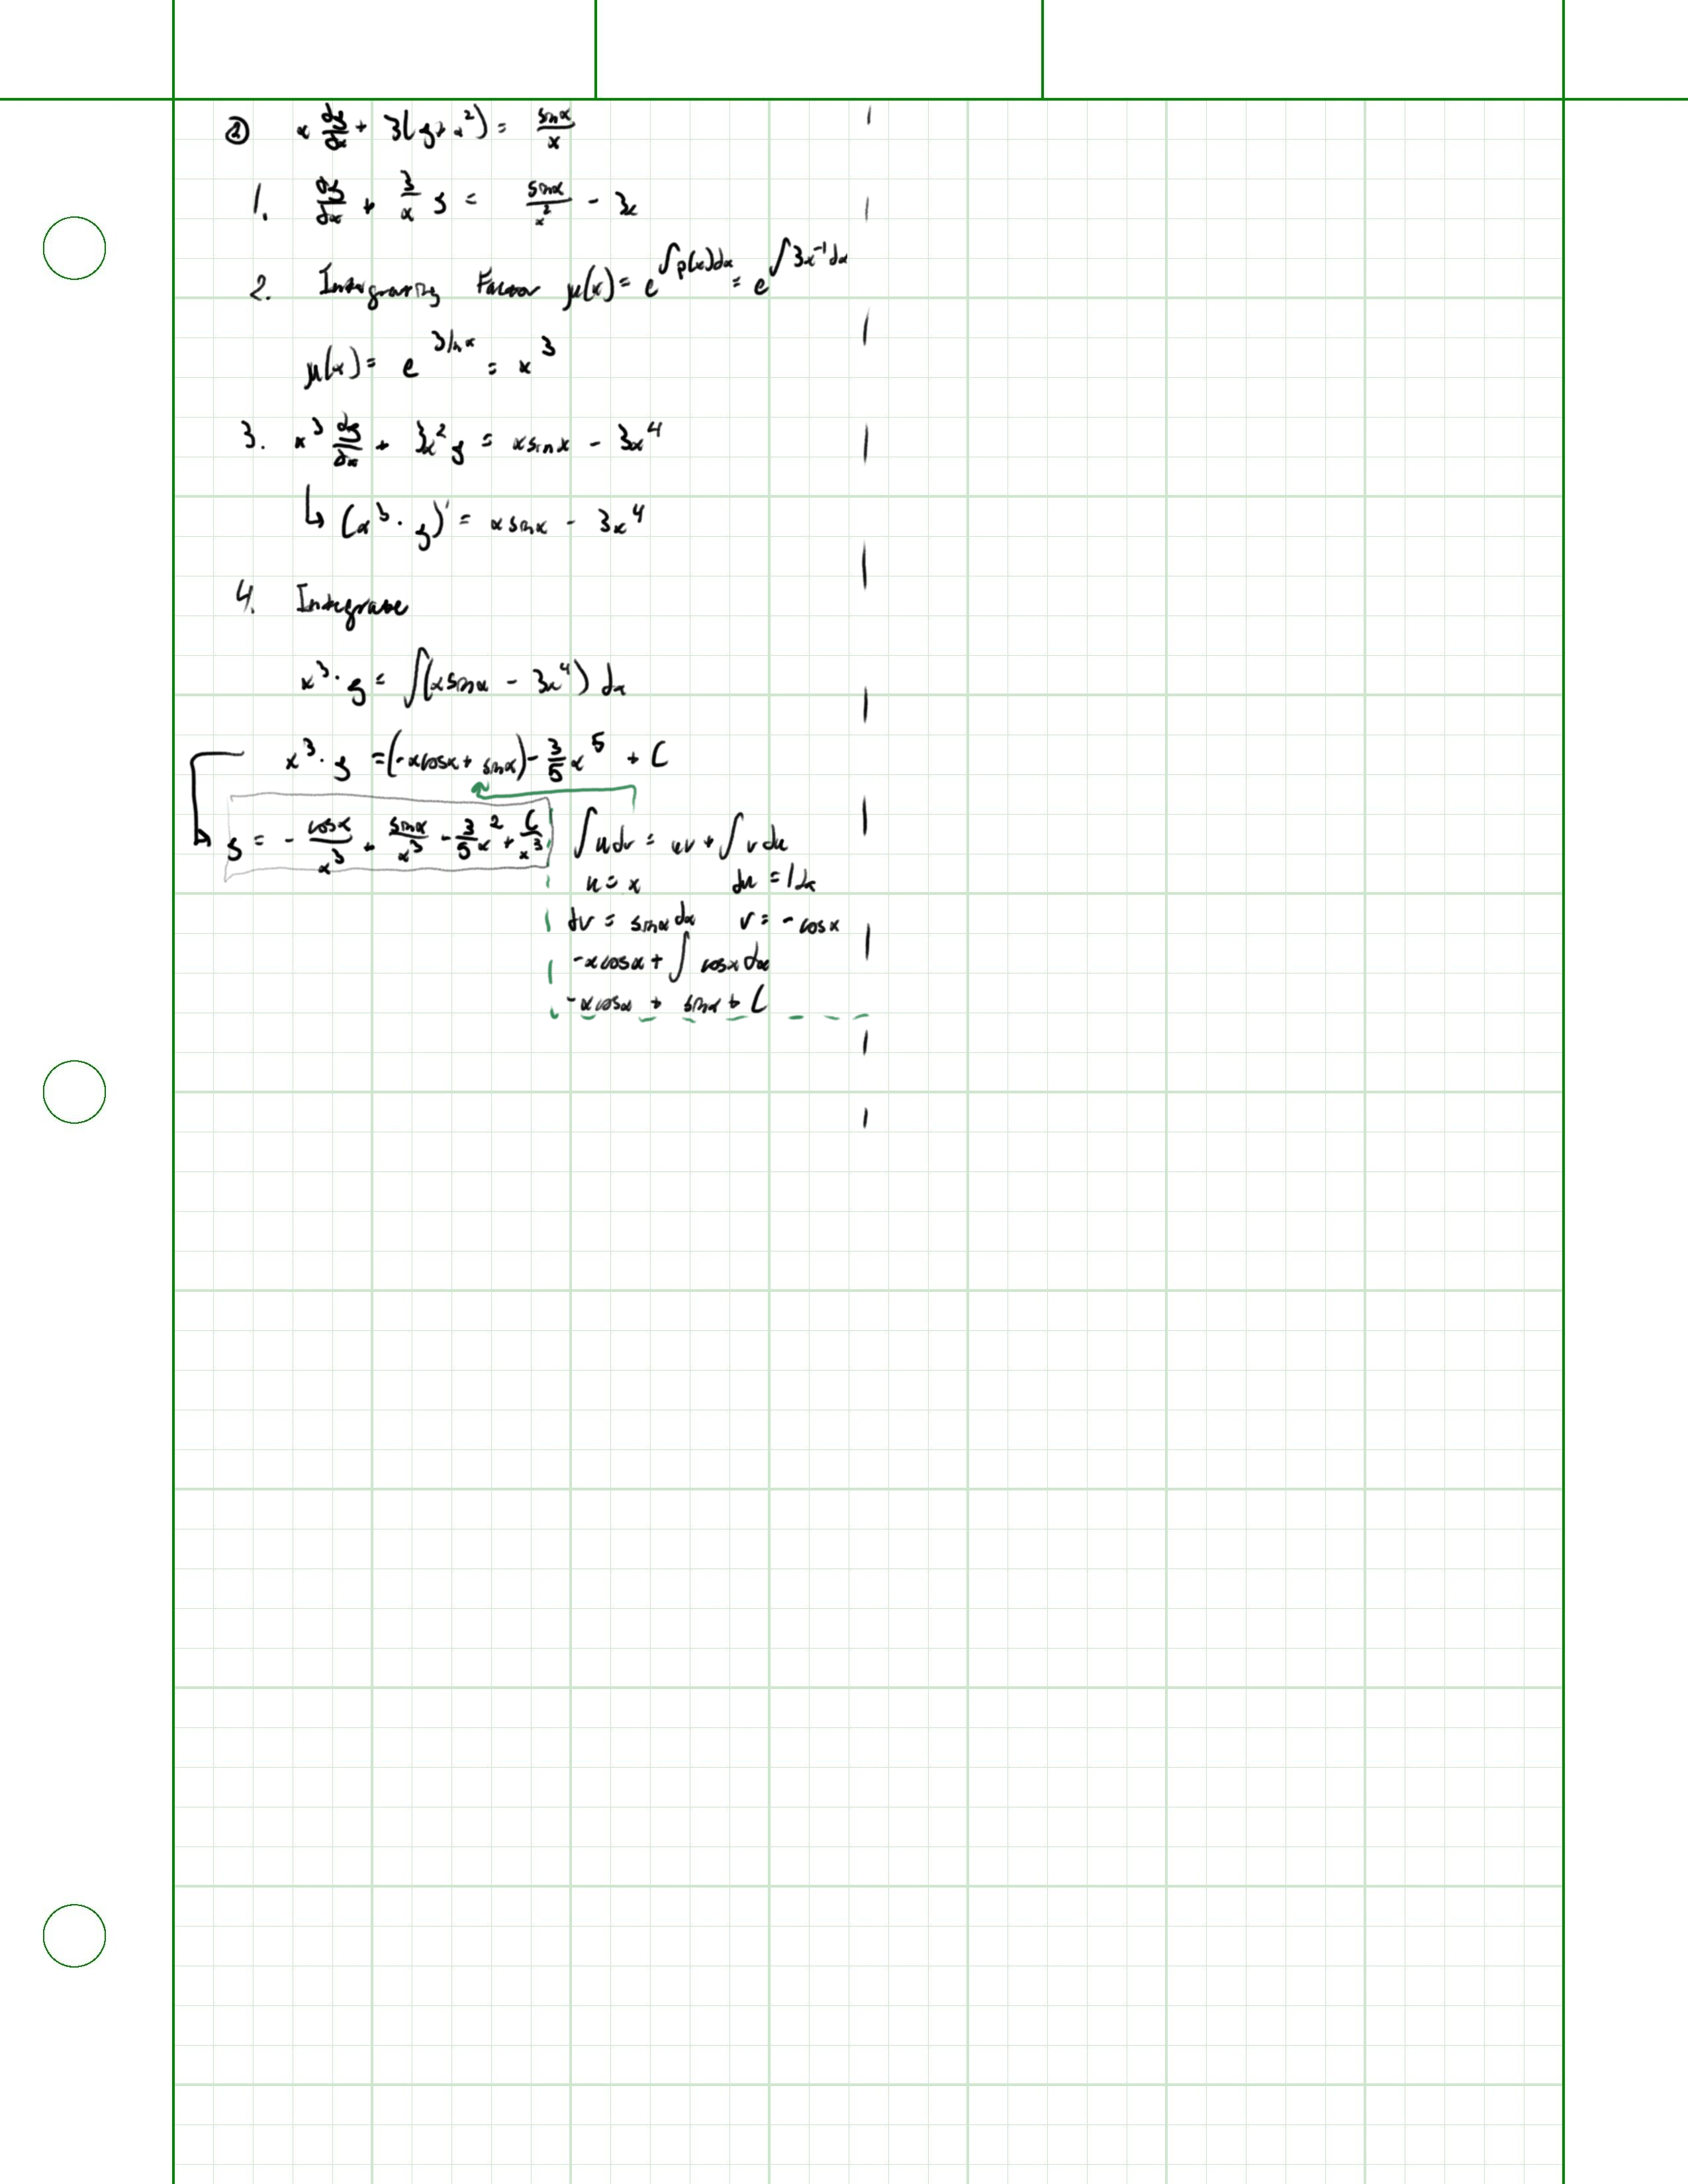 ② x dy/dx + 3(y + x²) = sinx/x
1. dy/dx + 3/x y = sinx/x² - 3x
2. Intergrating Factor μ(x) = e^∫p(x)dx = e^∫3x⁻¹dx
μ(x) = e^3lnx = x³
3. x³ dy/dx + 3x² y = xsinx - 3x⁴
↳ (x³ · y)' = xsinx - 3x⁴
4. Integrate
x³ · y = ∫(xsinx - 3x⁴) dx
x³ · y = (-xcosx + sinx) - 3/5 x⁵ + C
y = - cosx/x³ + sinx/x³ - 3/5 x² + C/x³
∫udv = uv + ∫vdu
u = x du = 1dx
dv = sinxdx v = -cosx
-xcosx + ∫cosxdx
-xcosx + sinx + C